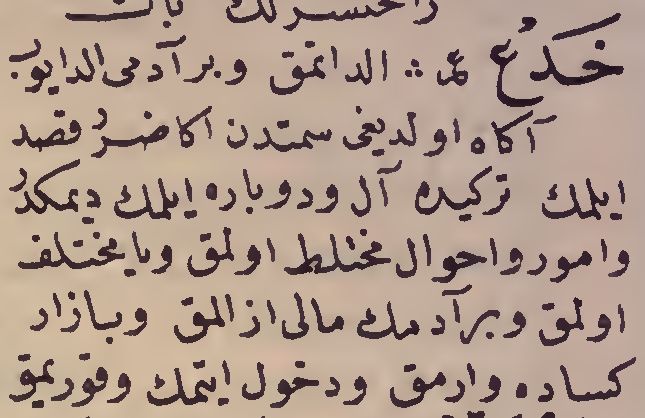 خدع ع م الداتمق وبر آدمى الدايوب
آكاه اولديغى سمتدن اكا ضرر قصد
ايلمك تركيده آل ودوباره ايلمك ديمكدر
وامور واحوال مختلط اولمق ويا مختلف
اولمق وبر آدمك مالى از المق وبازار
كساده وارمق ودخول ايتمك وقوريمق